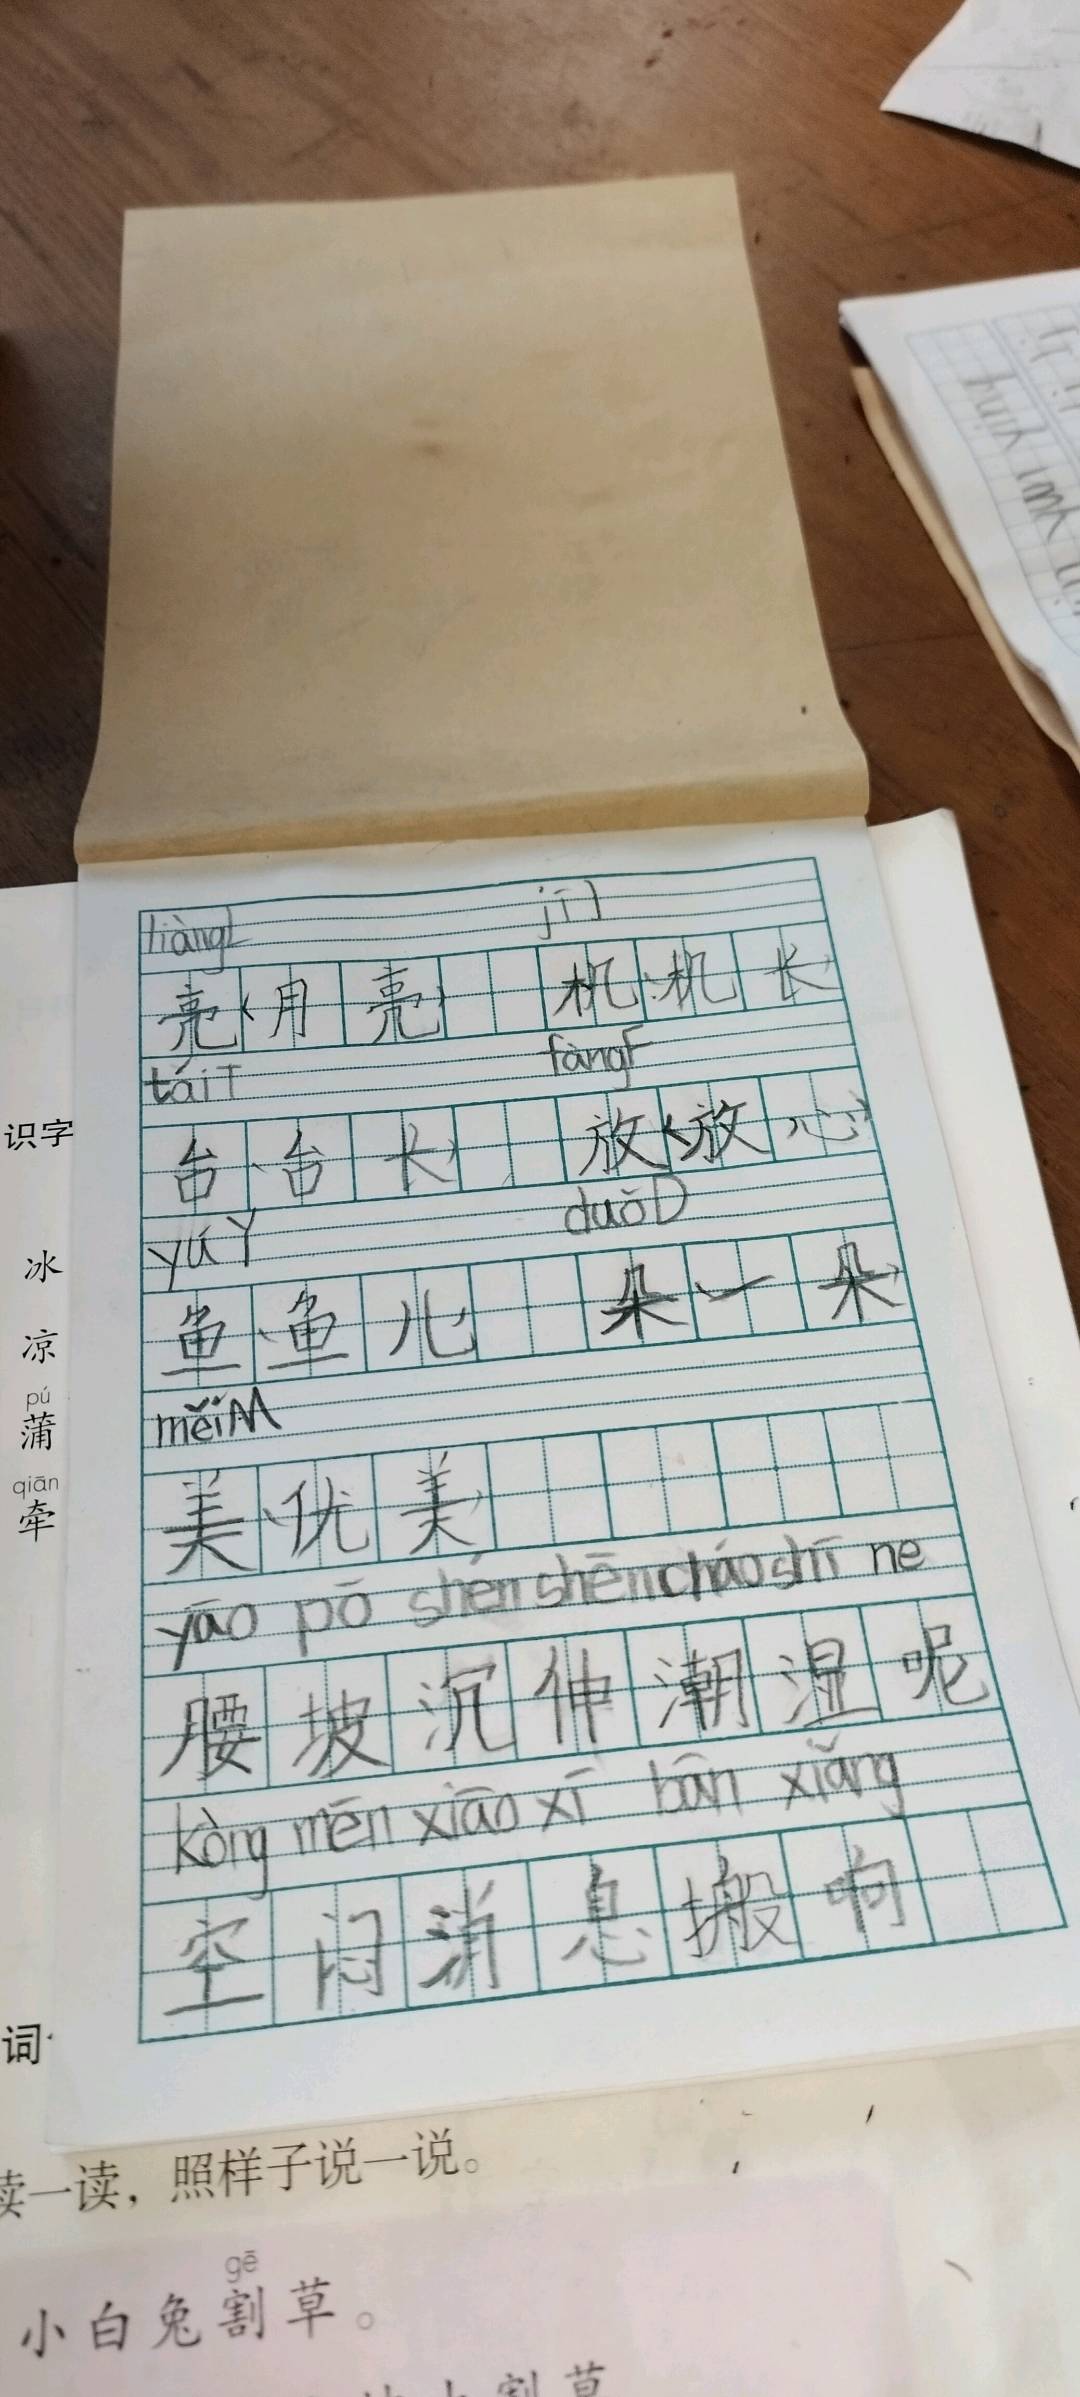 liàngL jīJ
亮(月亮) 机(机长)
táiT fàngF
台(台长) 放(放心)
yúY duǒD
鱼(鱼儿) 朵(一朵)
měiM
美(优美)
yāo pō shén shēn cháo shī ne
腰坡沉伸潮湿呢
kòng mēn xiāo xī bān xiǎng
空闷消息搬响
识字
冰
凉
pú
蒲
qiān
牵
词
读一读，照样子说一说。
gē
小白兔割草。